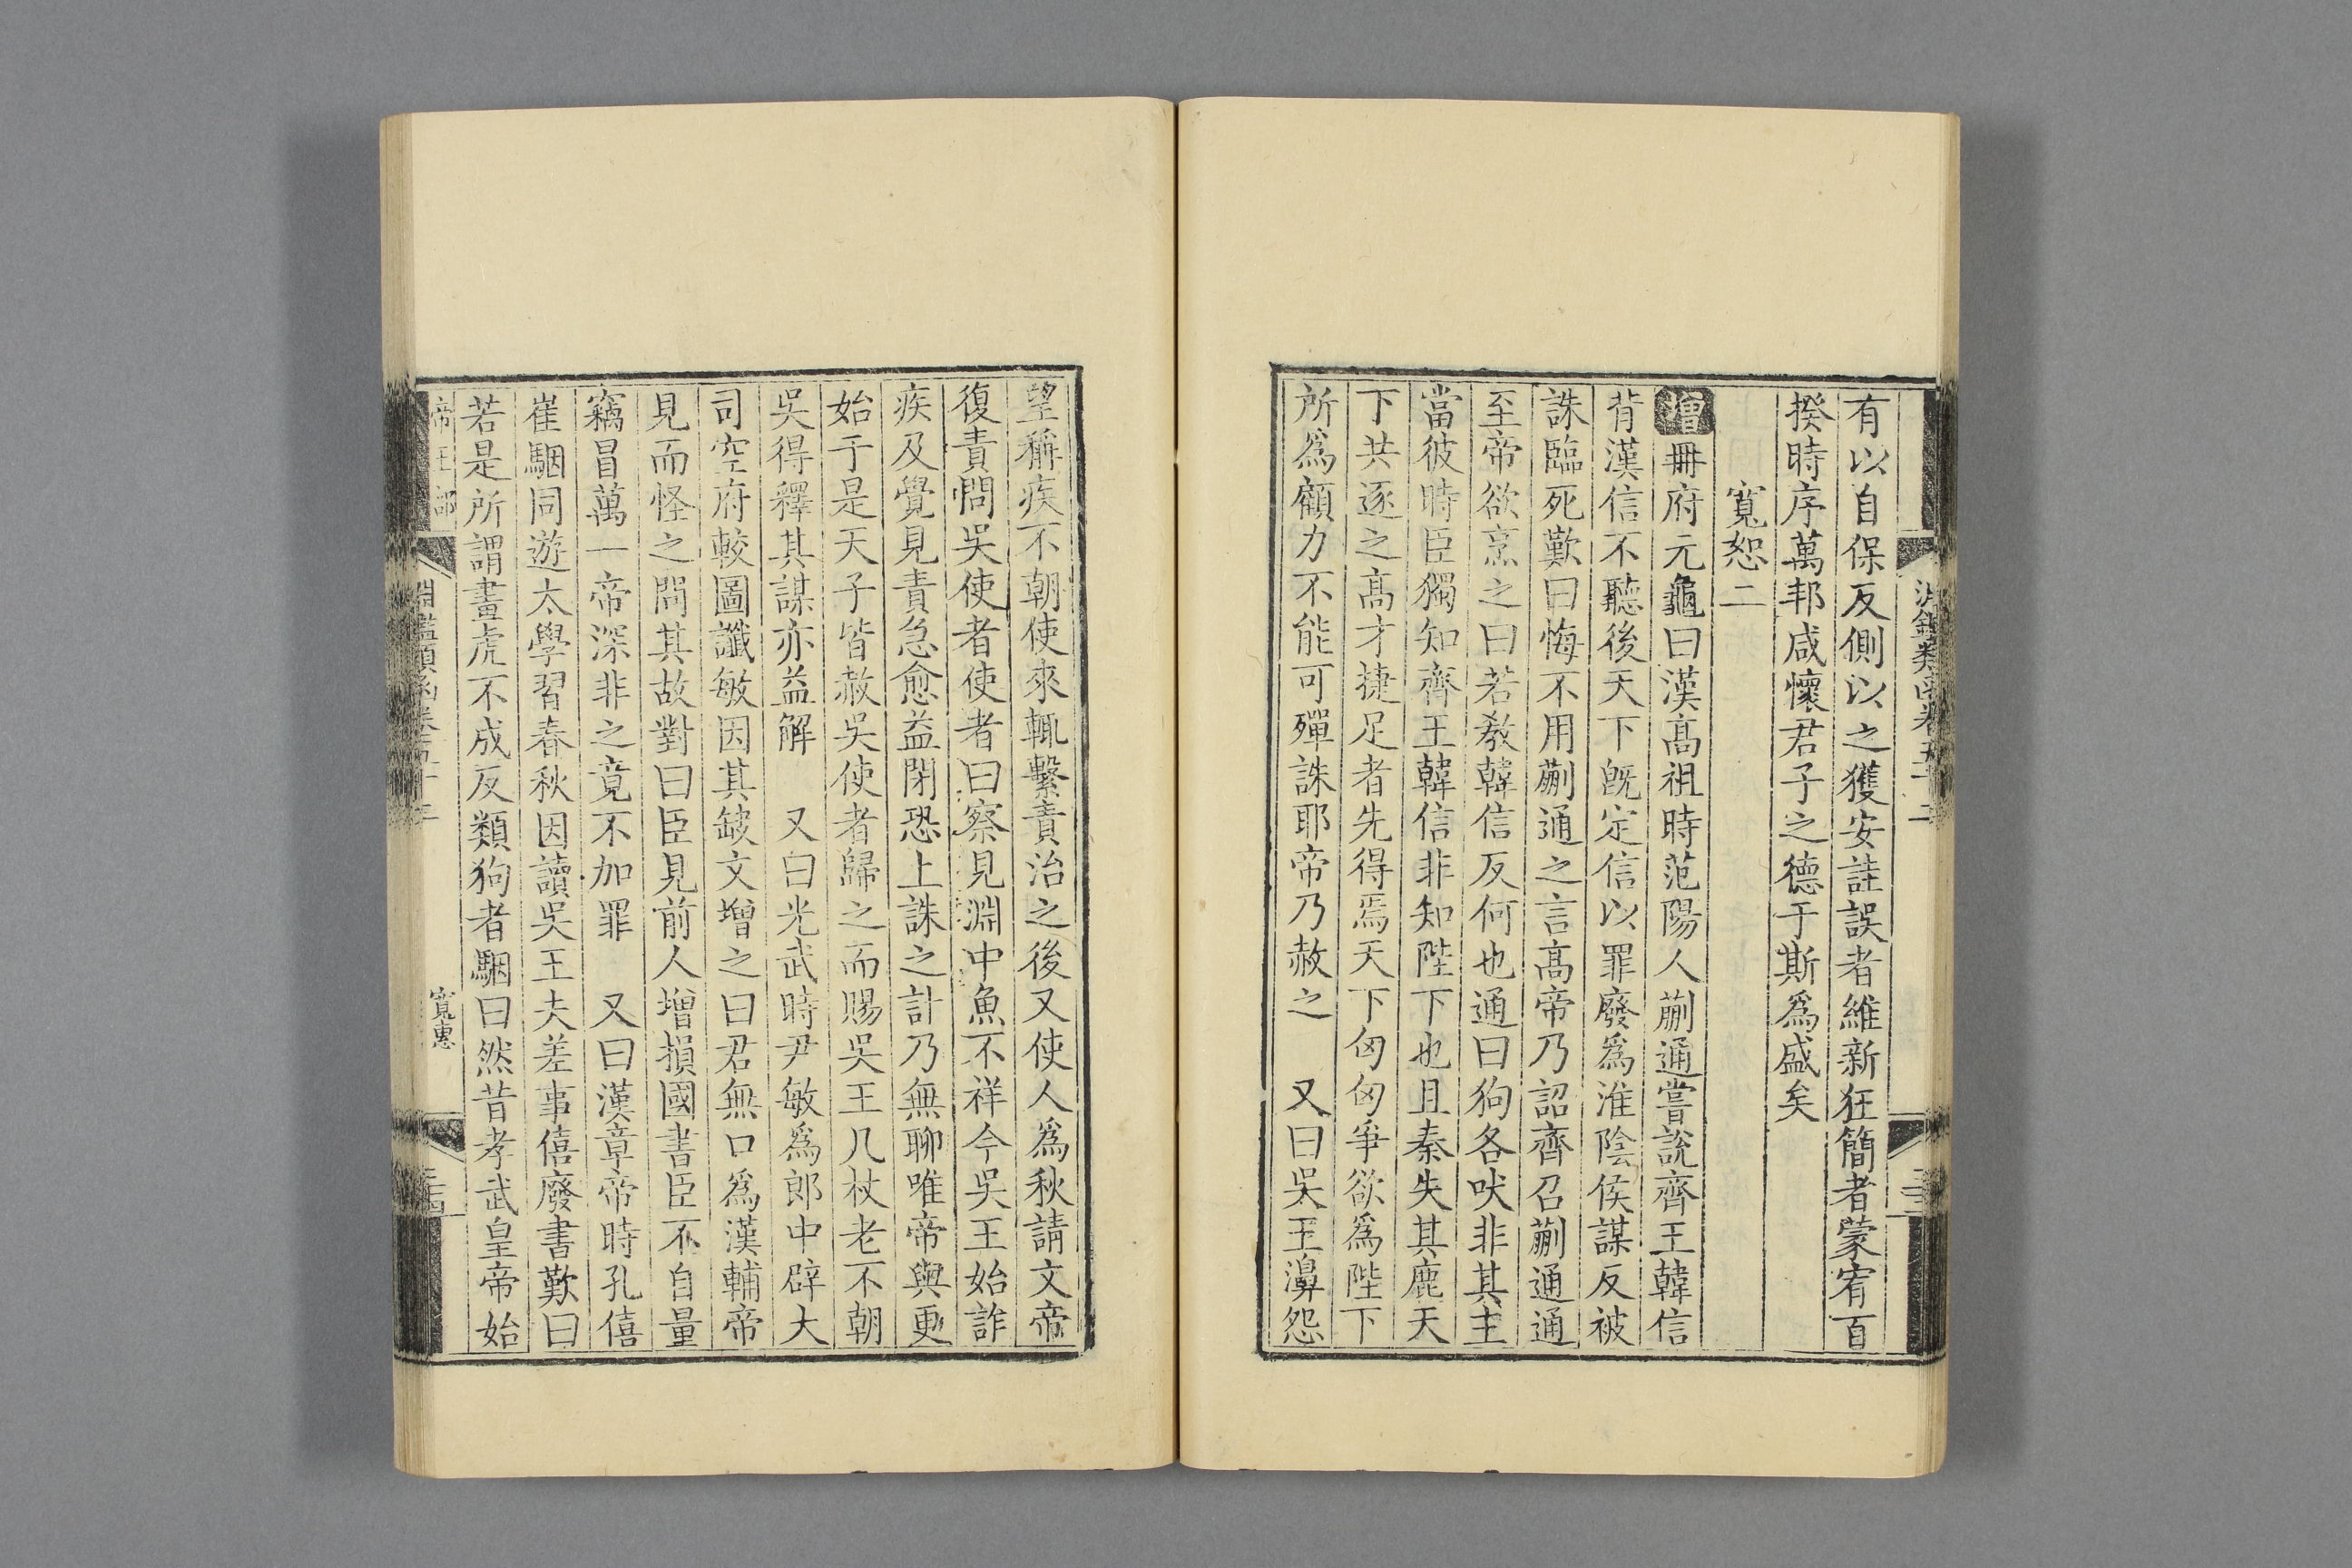 有以自保反側以之獲安詿誤者維新狂簡者蒙宥百
揆時序萬邦咸懷君子之德于斯爲盛矣
寬恕二
增冊府元龜曰漢高祖時范陽人蒯通嘗說齊王韓信
背漢信不聽後天下旣定信以罪廢爲淮陰侯謀反被
誅臨死歎曰悔不用蒯通之言高帝乃詔齊召蒯通通
至帝欲烹之曰若教韓信反何也通曰狗各吠非其主
當彼時臣獨知齊王韓信非知陛下也且秦失其鹿天
下共逐之高才捷足者先得焉天下匈匈爭欲爲陛下
所爲顧力不能可殫誅耶帝乃赦之 又曰吳王濞怨
望稱疾不朝使來輒繫責治之後又使人爲秋請文帝
復責問吳使者使者曰察見淵中魚不祥今吳王始詐
疾及覺見責急愈益閉恐上誅之計乃無聊唯帝與更
始于是天子皆赦吳使者歸之而賜吳王几杖老不朝
吳得釋其謀亦益解 又曰光武時尹敏爲郎中辟大
司空府較圖讖敏因其缺文增之曰君無口爲漢輔帝
見而怪之問其故對曰臣見前人增損國書臣不自量
竊冒萬一帝深非之竟不加罪 又曰漢章帝時孔僖
崔駰同遊太學習春秋因讀吳王夫差事僖廢書歎曰
若是所謂畫虎不成反類狗者駰曰然昔孝武皇帝始
帝王部 淵鑑類函卷五十二 寬惠